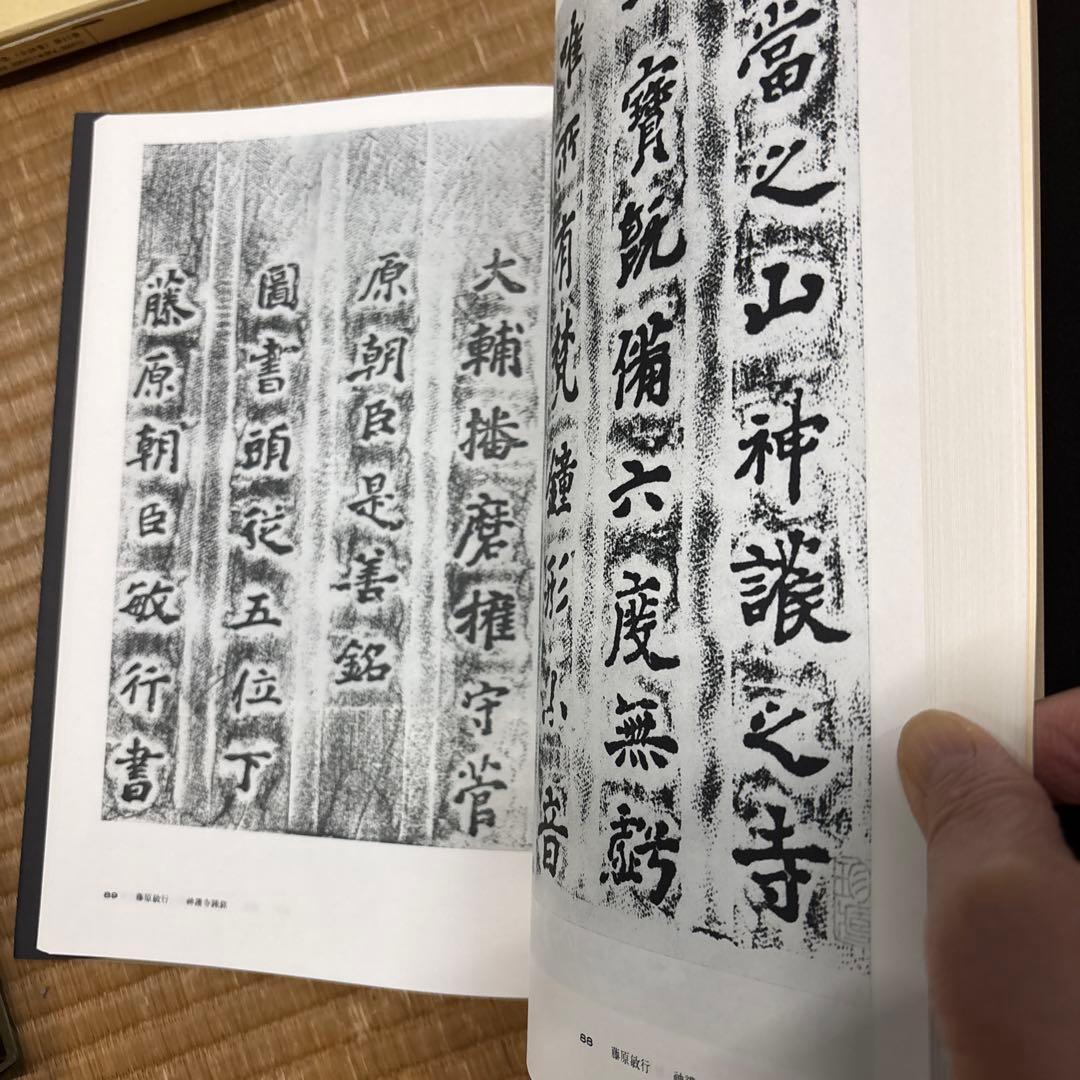 當之山神護之寺
寶既備六度無虧
唯所有梵鐘形小音
88 藤原敏行 神護
大輔播磨權守菅
原朝臣是善銘
圖書頭從五位下
藤原朝臣敏行書
89 藤原敏行 神護寺鐘銘